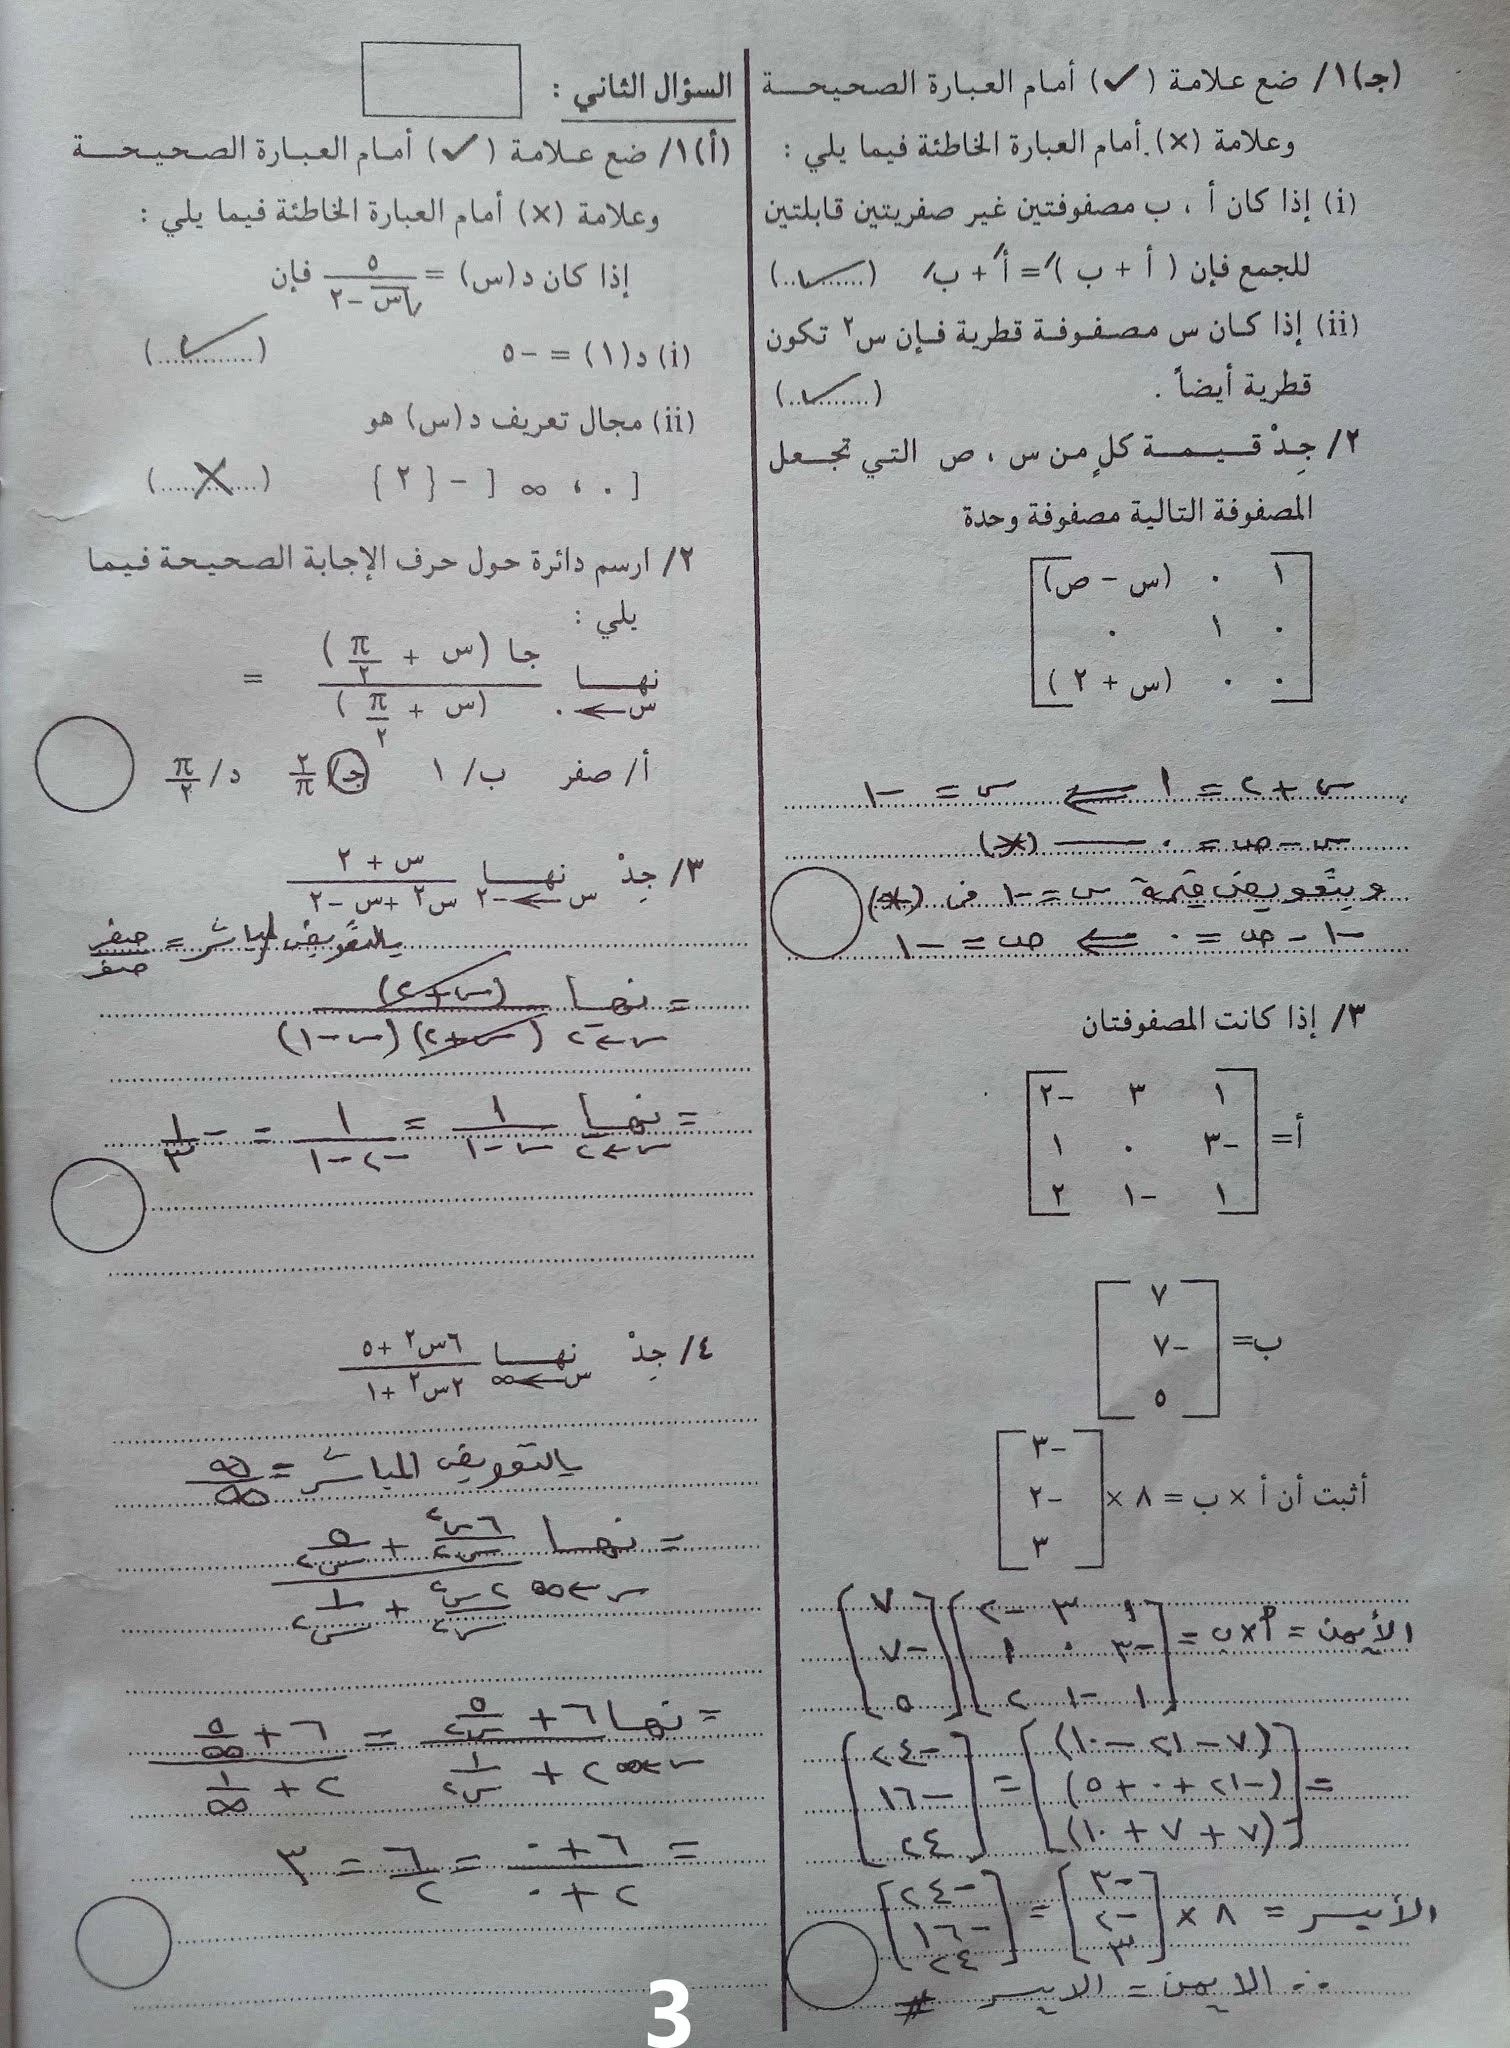 (جـ)١/ ضع علامة (✓) أمام العبارة الصحيحـــة
وعلامة (×) أمام العبارة الخاطئة فيما يلي :
(i) إذا كان أ ، ب مصفوفتين غير صفريتين قابلتين
للجمع فإن ( أ + ب )′ = أ′ + ب′ (..✓..)
(ii) إذا كـان س مصـفـوفـة قطرية فـإن س٢ تكون
قطرية أيضاً . (..✓..)
٢/ جِدْ قـيـمـة كلٍ من س ، ص التـي تجـعـل
المصفوفة التالية مصفوفة وحدة
١ ٠ (س – ص)
٠ ١ ٠
٠ ٠ (س + ٢ )
س + ٢ = ١ ⇐ س = –١
س – ص = ٠ —— (*)
وبتعويض قيمة س = –١ في (*)
–١ – ص = ٠ ⇐ ص = –١
٣/ إذا كانت المصفوفتان
أ =
١ ٣ –٢
–٣ ٠ ١
١ –١ ٢
ب =
٧
–٧
٥
أثبت أن أ × ب = ٨ ×
–٣
–٢
٣
الأيمن = أ×ب =
١ ٣ –٢ ٧
–٣ ٠ ١ –٧
١ –١ ٢ ٥
(٧ – ٢١ – ١٠) –٢٤
= (–٢١ + ٠ + ٥) = –١٦
(٧ + ٧ + ١٠) ٢٤
–٣ –٢٤
الأيسر = ٨ × –٢ = –١٦
٣ ٢٤
∴ الايمن = الايسر #
السؤال الثاني :
(أ)١/ ضع عـلامة (✓) أمام العبـارة الصحيـحـــة
وعلامة (×) أمام العبارة الخاطئة فيما يلي :
إذا كان د(س) = ٥ / (√س – ٢) فإن
(i) د(١) = –٥ (..✓..)
(ii) مجال تعريف د(س) هو
[ ٠ ، ∞ [ – { ٢ } (..×..)
٢/ ارسم دائرة حول حرف الإجابة الصحيحة فيما
يلي :
نهــا س←٠ جا (س + π/٢) / (س + π/٢) =
أ/ صفر ب/ ١ جـ/ ٢/π د/ π/٢
٣/ جِدْ نهــا س←–٢ (س + ٢) / (س٢ +س –٢)
بالتعويض المباشر = صفر/صفر
= نهــا س←–٢ (س+٢) / (س+٢)(س–١)
= نهــا س←–٢ ١/(س–١) = ١/(–٢–١) = –١/٣
٤/ جِدْ نهــا س←∞ (٦س٢ +٥) / (٢س٢ +١)
بالتعويض المباشر = ∞/∞
= نهــا س←∞ (٦س٢/س٢ + ٥/س٢) / (٢س٢/س٢ + ١/س٢)
= نهــا س←∞ (٦ + ٥/س٢) / (٢ + ١/س٢) = (٦ + ٥/∞) / (٢ + ١/∞)
= (٦ + ٠) / (٢ + ٠) = ٦/٢ = ٣
3